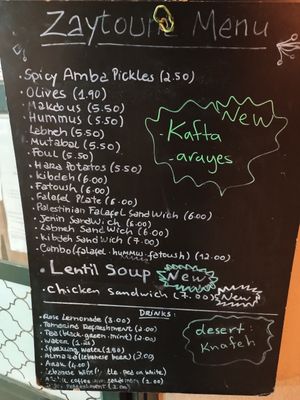 Zaytoun Menu
• Spicy Amba Pickles (2.50)
• Olives (1.90)
• Makdous (5.50)
• Hummus (5.50)
• Labneh (5.50)
• Mutabal (5.50)
• Foul (5.50)
• Hara Potatos (5.50)
• Kibdeh (6.00)
• Fatoush (6.00)
• Falafel Plate (6.00)
• Palestinian Falafel Sandwich (6.00)
• Jenin Sandwich (6.00)
• Labneh Sandwich (6.00)
• Kibdeh Sandwich (7.00)
• Combo (falafel. hummus. fattoush) (12.00)
• Lentil Soup New
• Chicken Sandwich (7.00) New
New
. Kafta
. arayes
DRINKS:
• Rose Lemonade (3.00)
• Tamarind Refreshment (2.00)
• Tea (black. green. mint) (2.00)
• Water
• Sparkling water
• Almaza (lebanese beer) (3.00)
• Arak
desert:
Knafeh